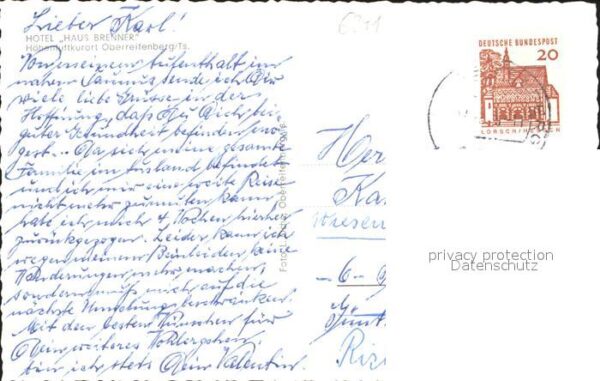 Lieber Karl!
HOTEL „HAUS BRENNER"
Höhenluftkurort Oberreifenberg/Ts.
Von meinem Aufenthalt im
nahen Taunus sende ich Dir
viele liebe Grüsse in der
Hoffnung, daß Du Dich bei
guter Gesundheit befinden
Da sich meine gesamte
Familie im Ausland befindet
und ich mir eine weite Reise
nicht zumuten kann,
habe ich mich 4 Wochen hierher
zurückgezogen. Leider kann ich
wegen meinem Beinleiden keine
Wanderungen mehr machen,
sondern muß mich auf die
nächste Umgebung beschränken.
Mit den besten Wünschen für
Dein weiteres Wohlergehen
bin ich stets Dein Valentin.
DEUTSCHE BUNDESPOST
20
LORSCH/HESSEN
Her
Ka
Wiesen
-6-
privacy protection
Datenschutz